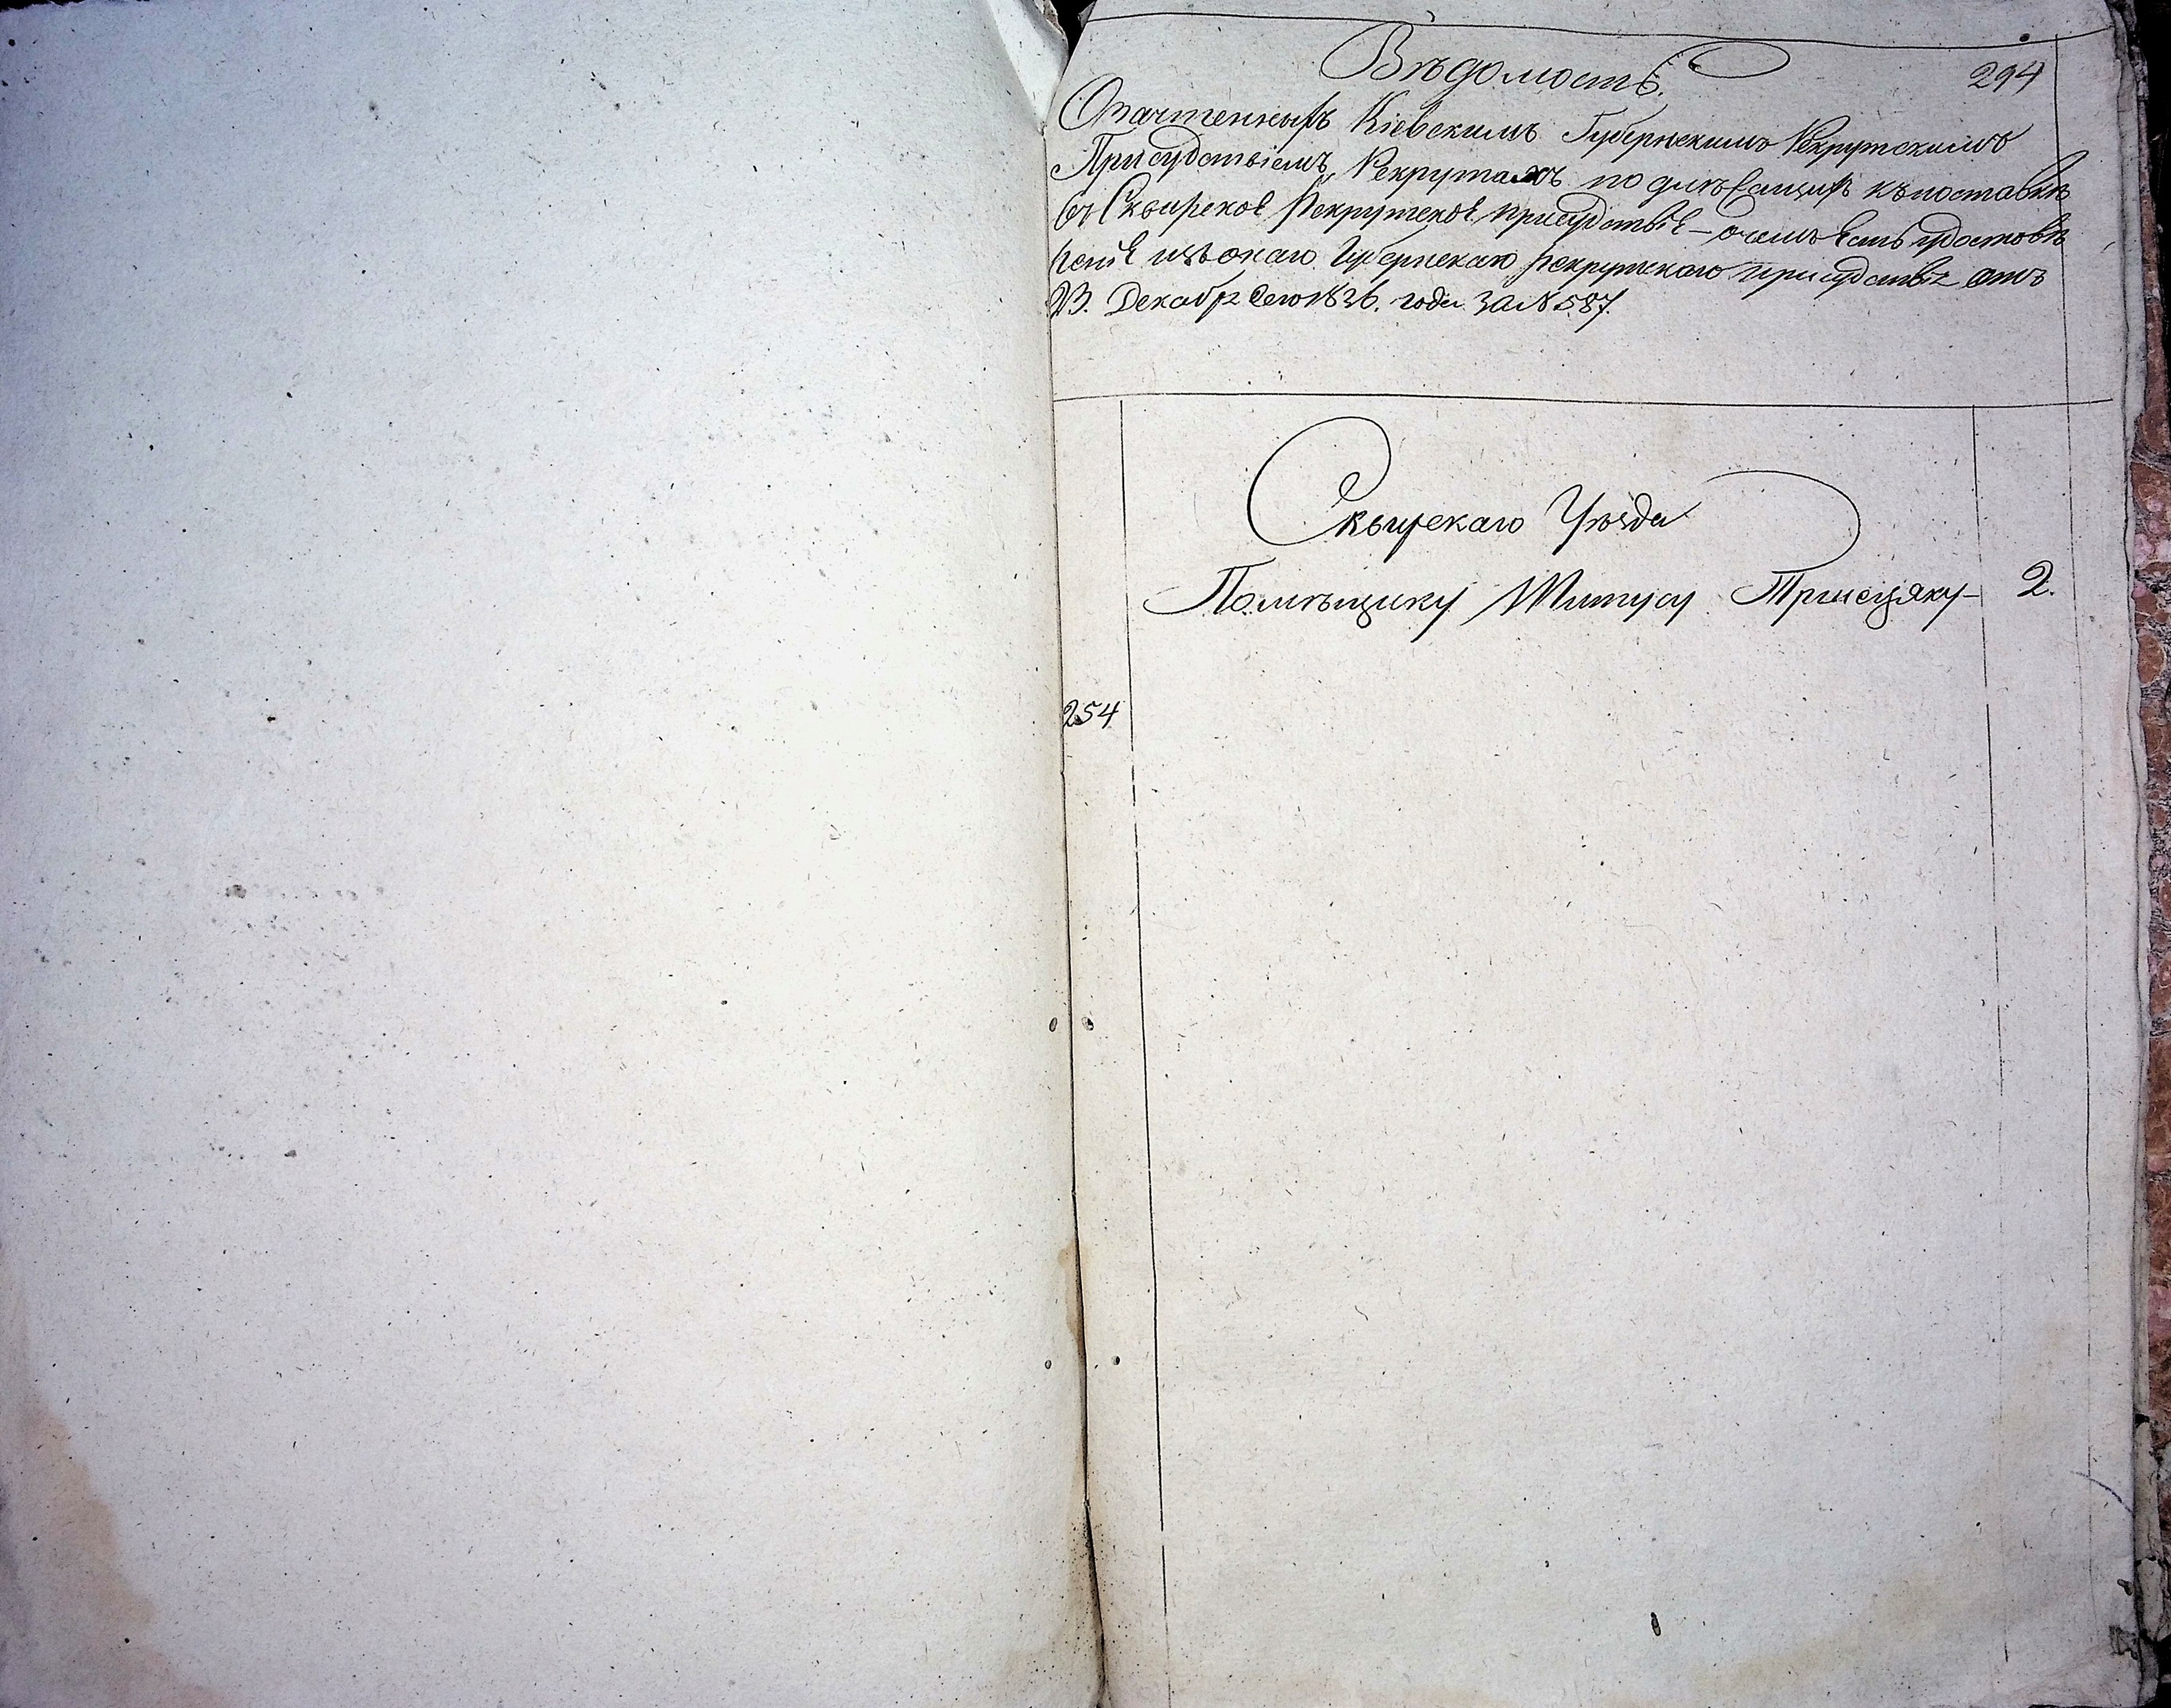 Вѣдомость.
294
О зачтенныхъ Кіевскимъ Губернскимъ Рекрутскимъ
Присудствіемъ Рекрутахъ подлежащихъ къ поставкѣ
въ Сквирское Рекрутское присудствіе — о чемъ есть удостовѣ
реніе изъ онаго Губернскаго рекрутскаго присудствія отъ
23. Декабря сего 1836. года за № 587.
Сквирскаго Уѣзда
Помѣщику Титусу Трисцяку — 2.
254